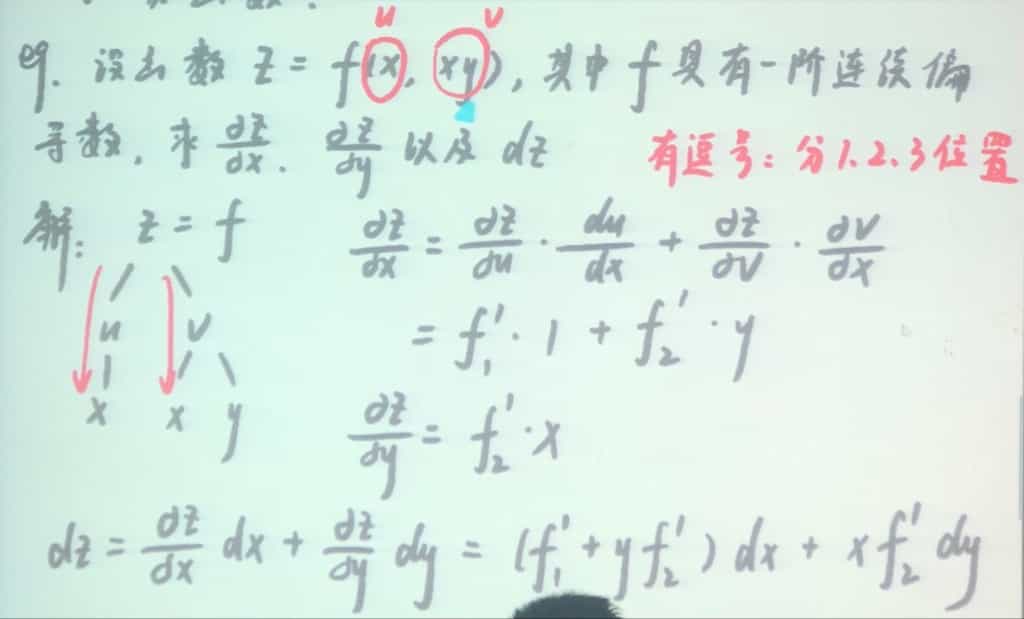 u v
eg. 设函数 z = f(x, xy), 其中 f 具有一阶连续偏
导数, 求 ∂z/∂x. ∂z/∂y 以及 dz
有逗号: 分1.2.3位置
解: z = f
u v
x x y
∂z/∂x = ∂z/∂u · du/dx + ∂z/∂v · ∂v/∂x
= f₁′ · 1 + f₂′ · y
∂z/∂y = f₂′ · x
dz = ∂z/∂x dx + ∂z/∂y dy = (f₁′ + y f₂′) dx + x f₂′ dy